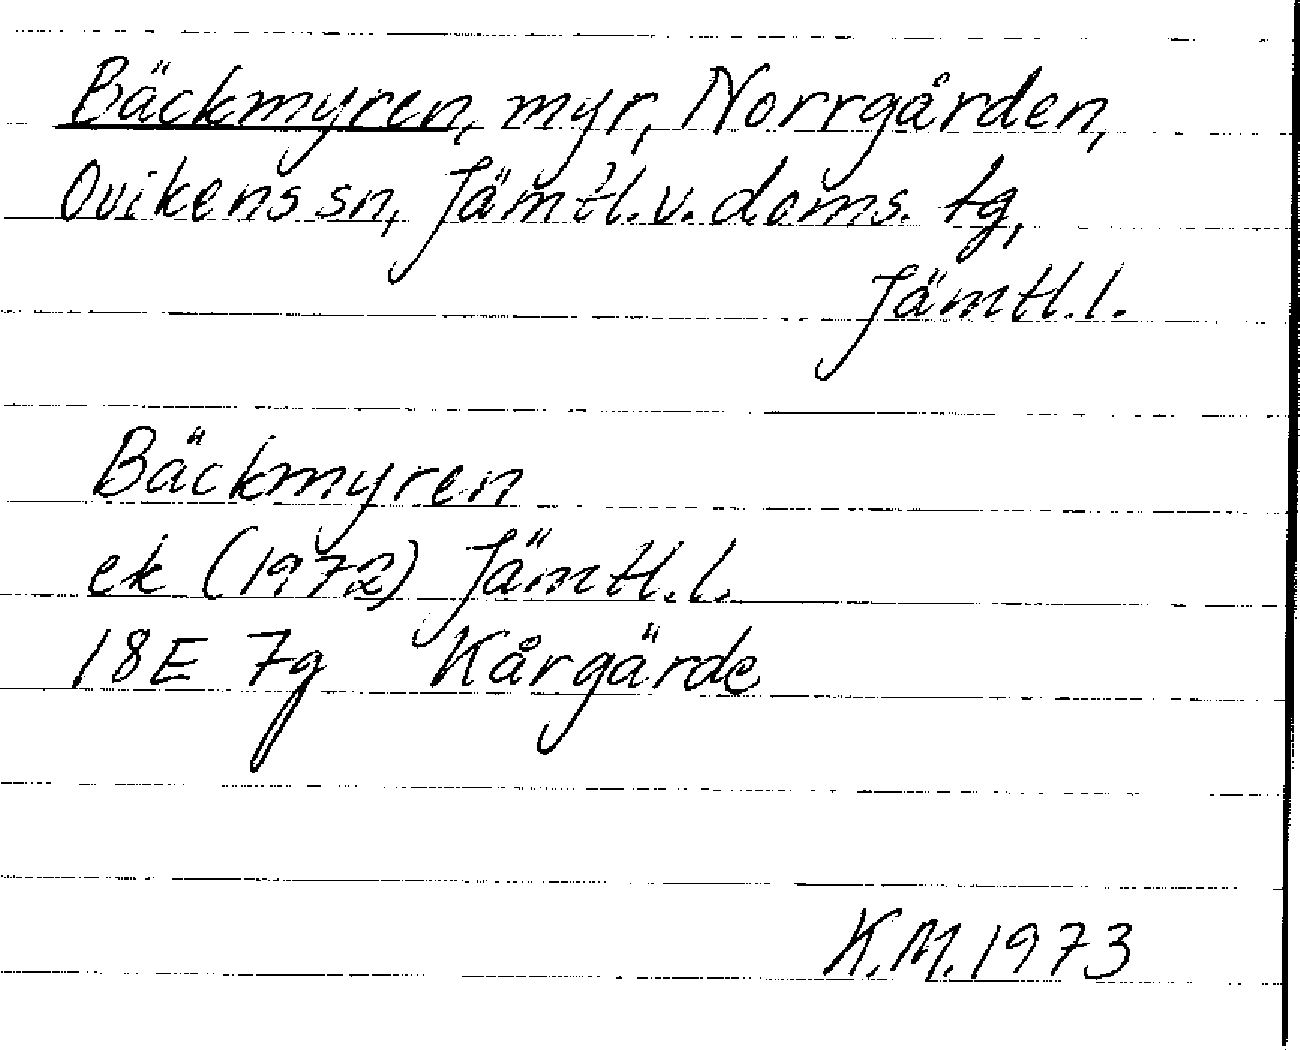 Bäckmyren, myr, Norrgården,
Ovikens sn, Jämtl. v. doms. tg,
Jämtl. l.
Bäckmyren
ek (1972) Jämtl. l.
18E 7g Kårgärde
K.M. 1973